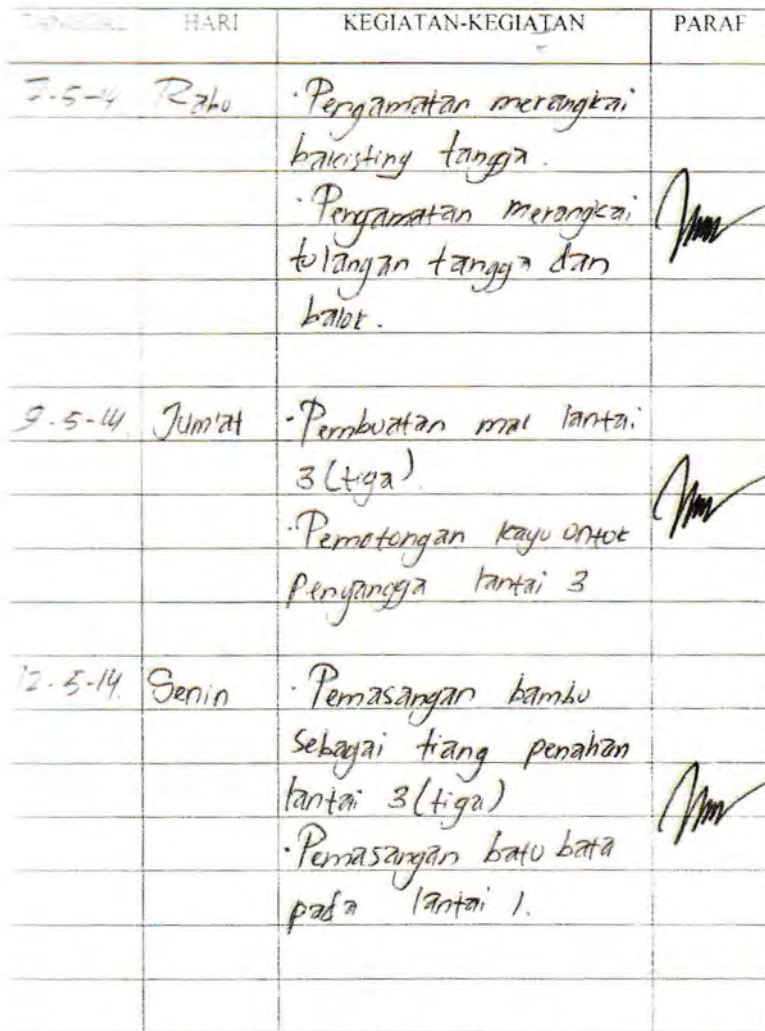 TANGGAL HARI KEGIATAN-KEGIATAN PARAF
7-5-14 Rabu · Pengamatan merangkai
bakisting tangga.
· Pengamatan merangkai
tulangan tangga dan
balok.
9-5-14. Jum'at · Pembuatan mal lantai
3 (tiga)
· Pemotongan kayu untuk
Penyangga lantai 3
12-5-14. Senin · Pemasangan bambu
sebagai tiang penahan
lantai 3 (tiga)
· Pemasangan batu bata
pada lantai 1.